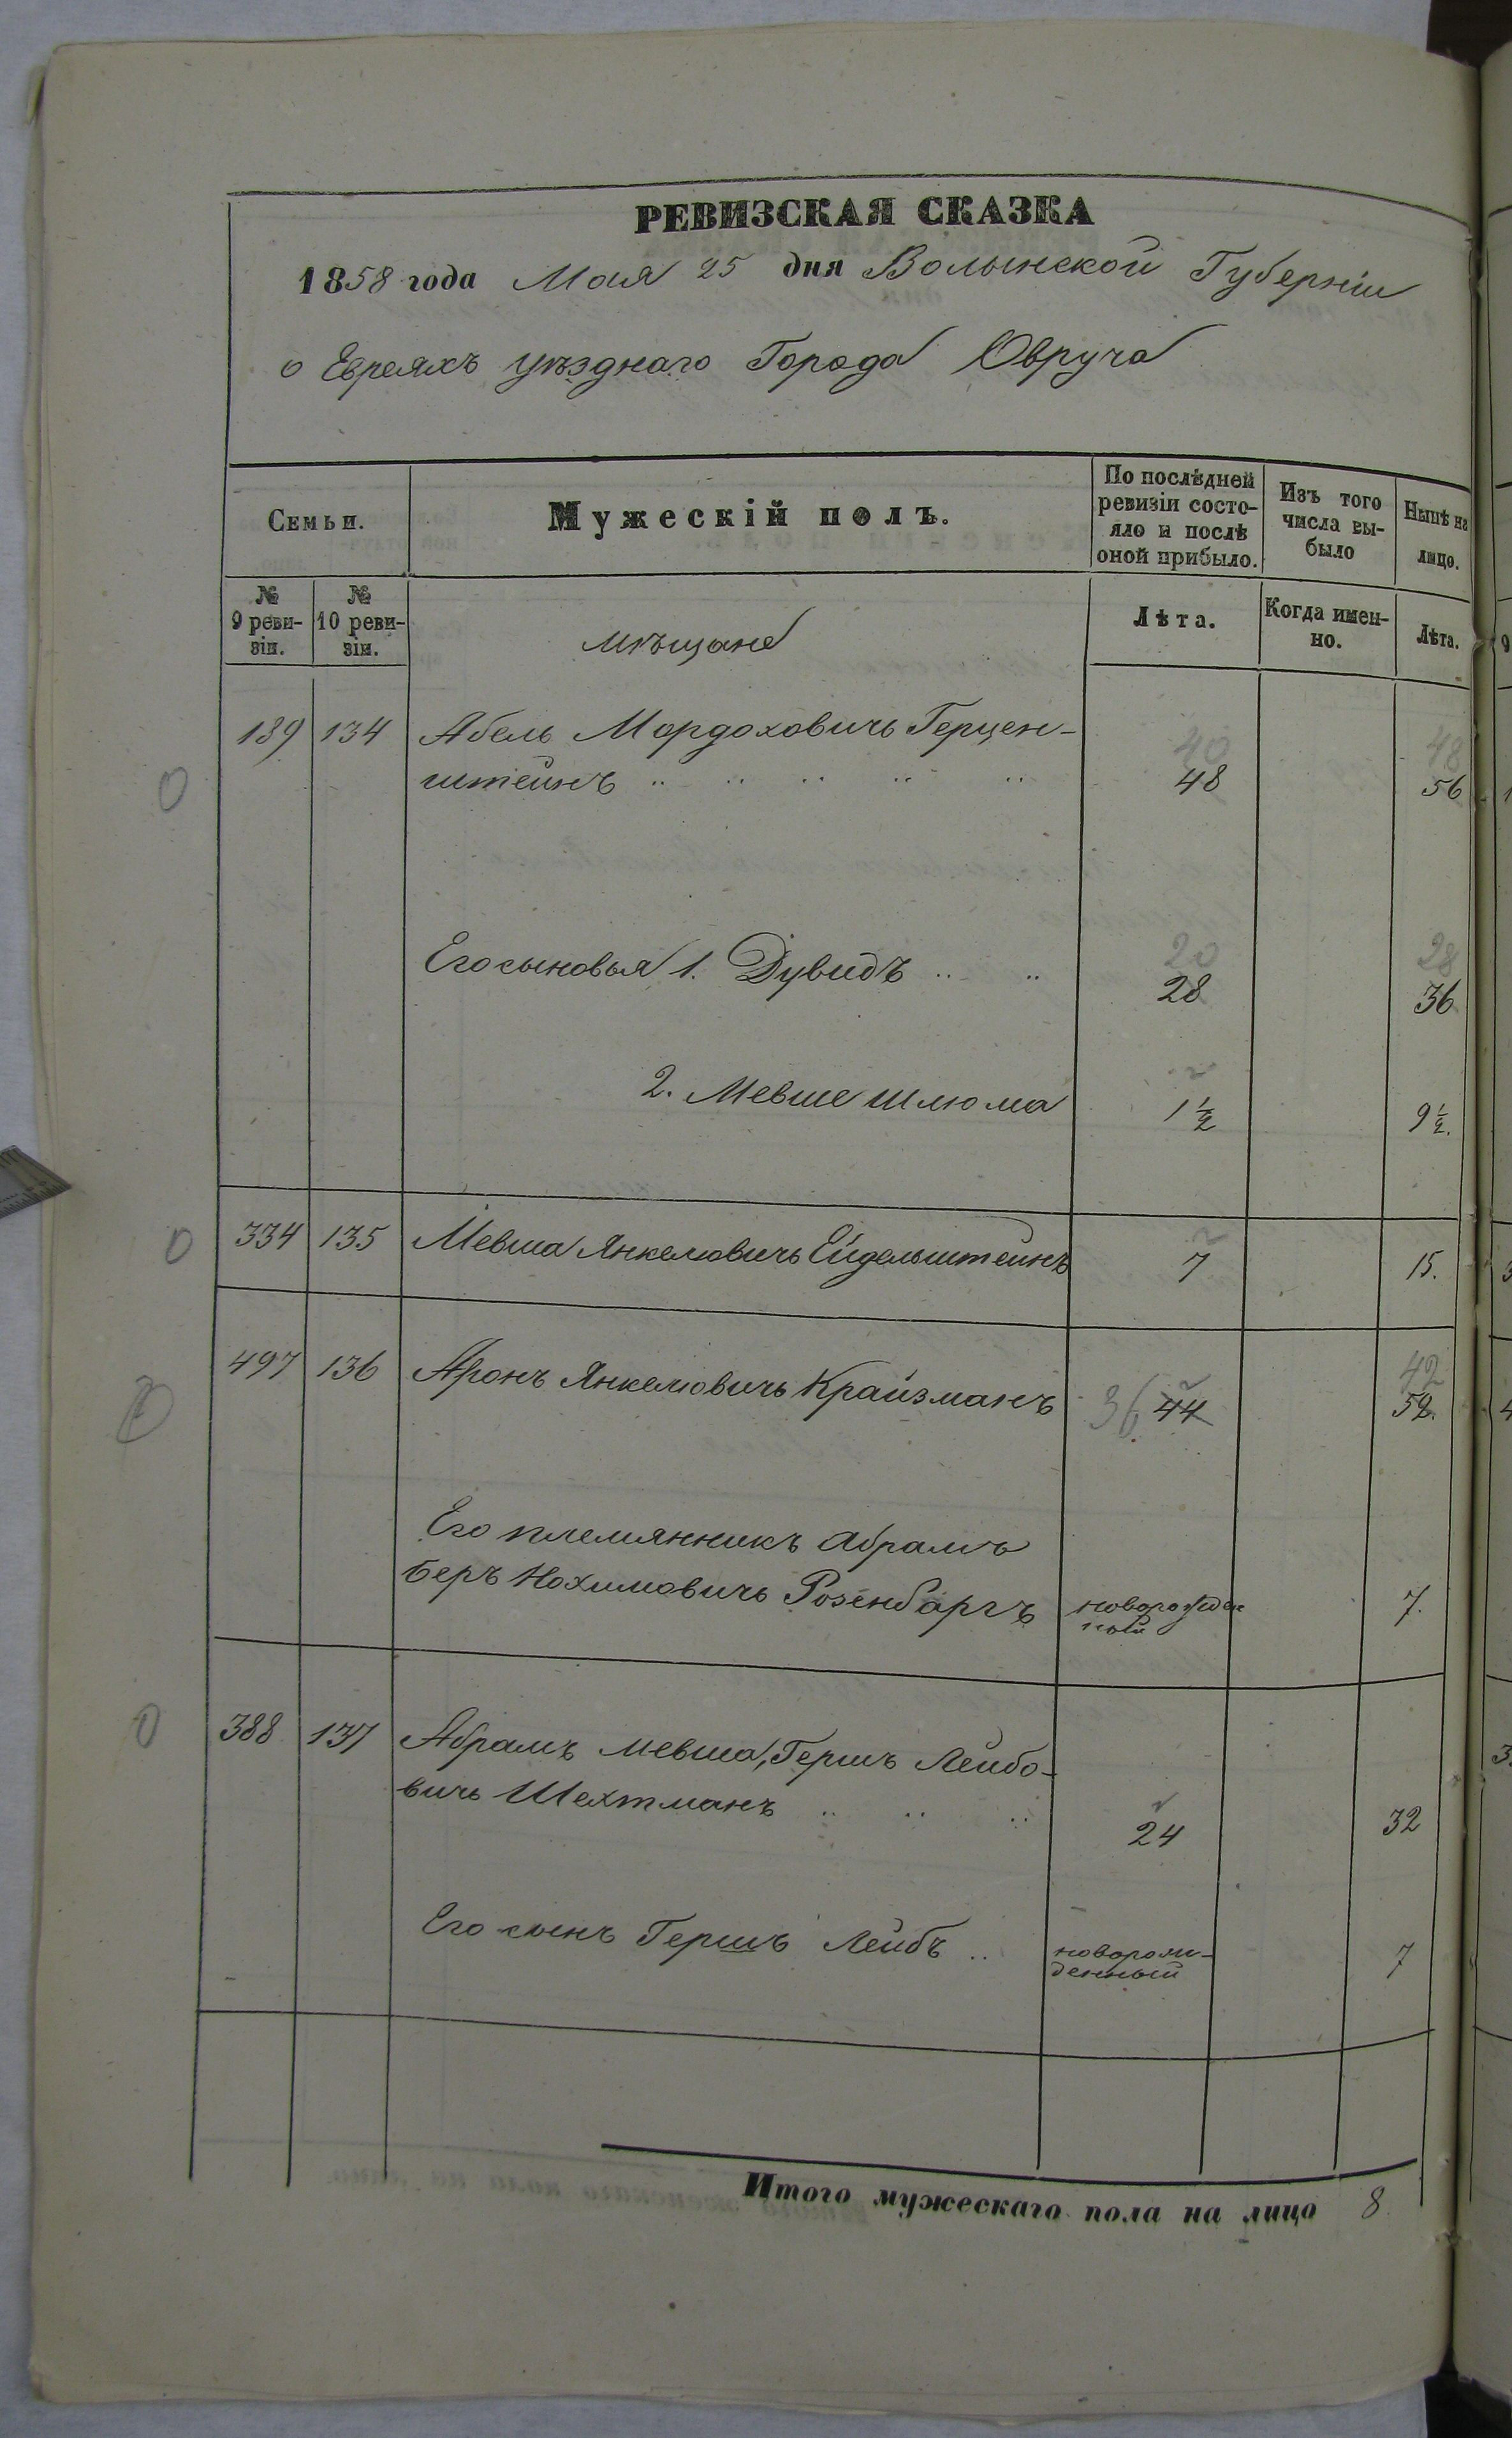 РЕВИЗСКАЯ СКАЗКА
1858 года Мая 25 дня Волынской Губерніи
о Евреяхъ уѣзднаго Города Овруча
Семьи.
Мужескій полъ.
По послѣдней ревизіи состояло и послѣ оной прибыло.
Изъ того числа выбыло
Нынѣ на лицо.
№ 9 ревизіи.
№ 10 ревизіи.
мѣщане
Лѣта.
Когда именно.
Лѣта.
189 134 Абель Мордоховичъ Герцен- 40 48
штейнъ 48 56
Его сыновья 1. Дувидъ 20 28
28 36
2. Мевше Шлюма 1½ 9½.
334 135 Мевша Янкелювичъ Ейдельштейнъ 7 15.
497 136 Аронъ Янкелювичъ Крайзманъ 36 44 42
52.
Его племянникъ Абрамъ
Беръ Нохимовичъ Розенбаргъ новорожден
ный 7.
388 137 Абрамъ Мевша, Гершъ Лейбо-
вичъ Шехтманъ 24 32
Его сынъ Гершъ Лейбъ новорож-
денный 7
Итого мужескаго пола на лицо 8.